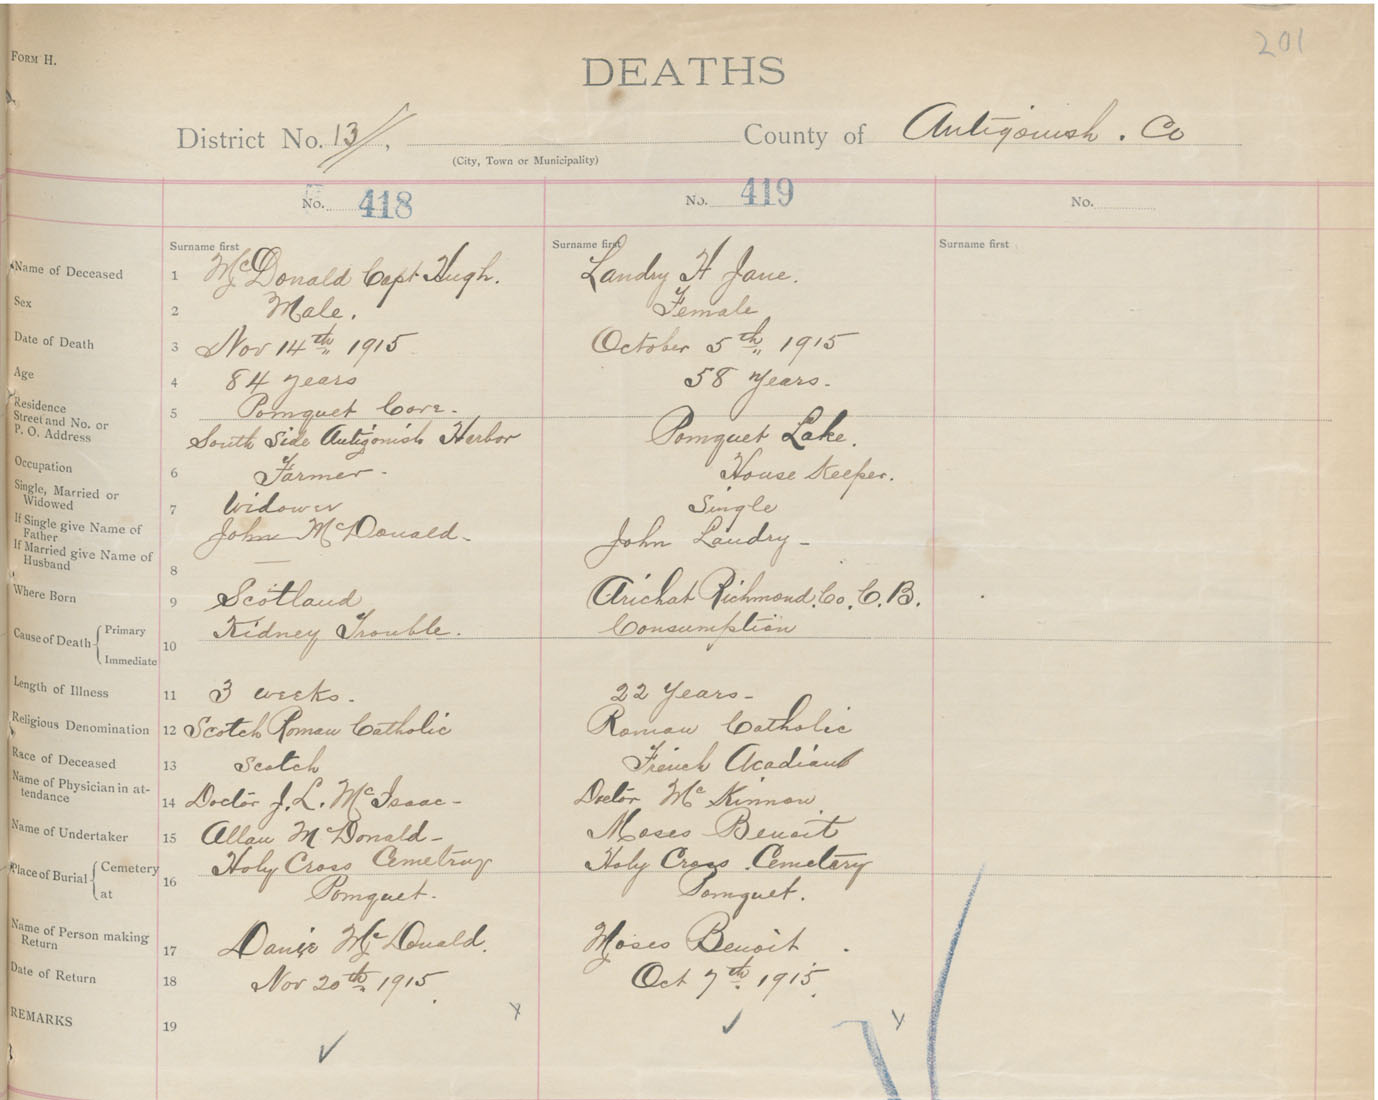 201
FORM H.
DEATHS
District No. 13, County of Antigonish. Co
(City, Town or Municipality)
No. 418
No. 419
No.
Surname first
Surname first
Surname first
Name of Deceased 1 McDonald Capt Hugh. Landry H Jane.
Sex 2 Male. Female
Date of Death 3 Nov 14th 1915 October 5th 1915
Age 4 84 years 58 years.
Residence 5 Pomquet Cove.
Street and No. or
P. O. Address South Side Antigonish Harbor Pomquet Lake.
Occupation 6 Farmer. House Keeper.
Single, Married or
Widowed 7 Widower Single
If Single give Name of
Father John McDonald John Landry
If Married give Name of
Husband 8 —
Where Born 9 Scotland Arichat Richmond. Co. C. B.
Cause of Death { Primary Kidney Trouble. Consumption
10
Immediate
Length of Illness 11 3 weeks. 22 Years
Religious Denomination 12 Scotch Roman Catholic Roman Catholic
Race of Deceased 13 Scotch French Acadian
Name of Physician in at-
tendance 14 Doctor J. L. McIsaac Doctor McKinnon
Name of Undertaker 15 Allan McDonald Moses Benoit
Place of Burial { Cemetery Holy Cross Cemetruy Holy Cross Cemetary
16
at Pomquet. Pomquet.
Name of Person making
Return 17 McDonald. Moses Benoit
Date of Return 18 Nov 20th 1915. Oct 7th 1915.
REMARKS 19